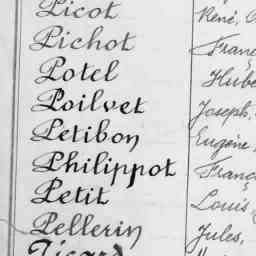 Picot René,
Pichot Franç
Potel Hube
Poilvet Joseph,
Petibon Eugène
Philippot Franç
Petit Louis
Pellerin Jules,
Picard